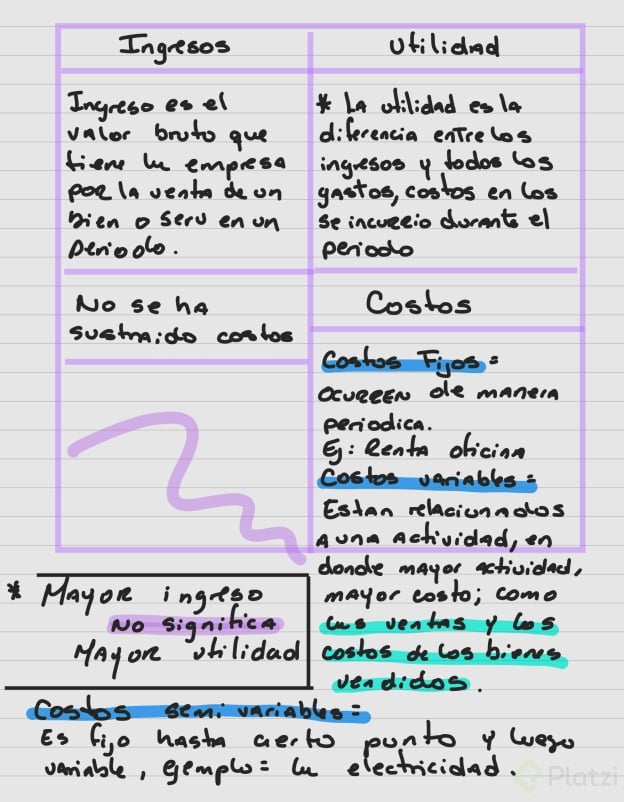 Ingresos
Ingreso es el
valor bruto que
tiene la empresa
por la venta de un
bien o serv en un
periodo.
No se ha
sustraido costos
Utilidad
* La utilidad es la
diferencia entre los
ingresos y todos los
gastos, costos en los
se incurrio durante el
periodo
Costos
Costos Fijos =
ocurren de manera
periodica.
Ej: Renta oficina
Costos variables =
Estan relacionados
a una actividad, en
donde mayor actividad,
mayor costo; como
las ventas y los
costos de los bienes
vendidos.
* Mayor ingreso
no significa
Mayor utilidad
Costos semi variables =
Es fijo hasta cierto punto y luego
variable, ejemplo = la electricidad.
Platzi